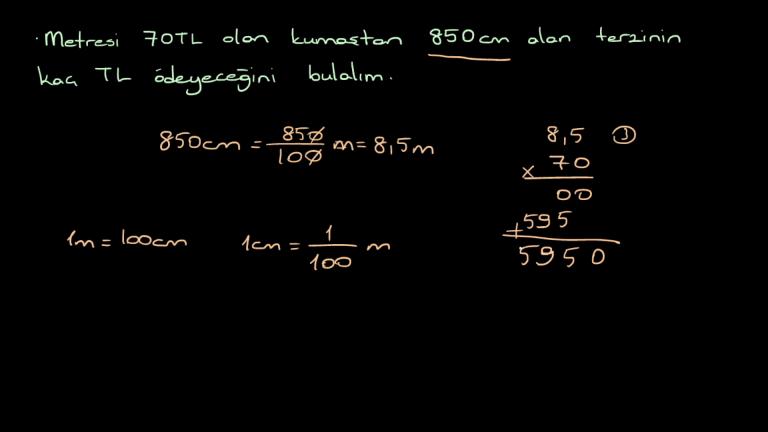 · Metresi 70TL olan kumaştan 850cm alan terzinin
kaç TL ödeyeceğini bulalım.
850cm = 850/100 m = 8,5m
8,5 ①
x 70
00
+595
5950
1m = 100cm 1cm = 1/100 m